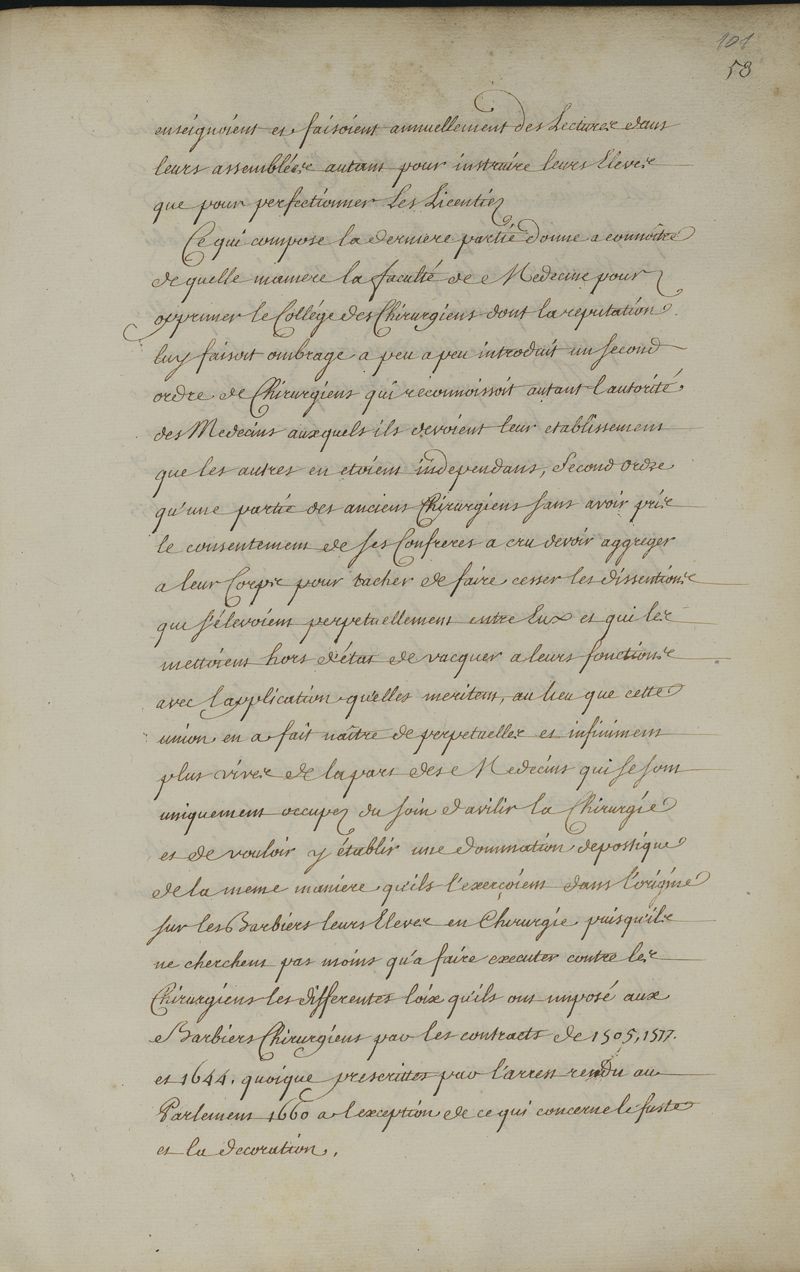 101
58
enseignoient et faisoient annuellement des Lectures dans
leurs assemblées autant pour instruire leurs Eleves
que pour perfectionner Les Licentiez
Ce qui compose la derniere partie donne a connoître
de quelle maniere la faculté de Medecine pour
opprimer le Collége des Chirurgiens dont la reputation
luy faisoit ombrage a peu a peu introduit un second
ordre de Chirurgiens qui reconnoissoit autant l'autorité
des Medecins auxquels ils devoient leur etablissement
que les autres en etoient independans, Second ordre
qu'une partie des anciens Chirurgiens sans avoir pris
le consentement de ses Confreres a cru devoir aggreger
a leur Corps pour tacher de faire cesser les dissentions
qui s'élevoient perpetuellement entre Eux et qui les
mettoient hors d'état de vacquer a leurs fonctions
avec l'application qu'elles meritent, au lieu que cette
union en a fait naître de perpetuelles et infiniment
plus vives de la part des Medecins qui se sont
uniquement occupez du soin d'avilir la Chirurgie
et de vouloir y établir une domination depostique
de la meme maniere qu'ils l'exerçoient dans l'origine
sur les Barbiers leurs Eleves en Chirurgie puisqu'ils
ne cherchent pas moins qu'a faire executer contre les
Chirurgiens les differentes loix qu'ils ont imposé aux
Barbiers Chirurgiens par les contracts de 1505, 1577.
et 1644. quoique prescrittes par l'arrest rendu au
Parlement 1660 a l'exception de ce qui concerne le faste
et la decoration.